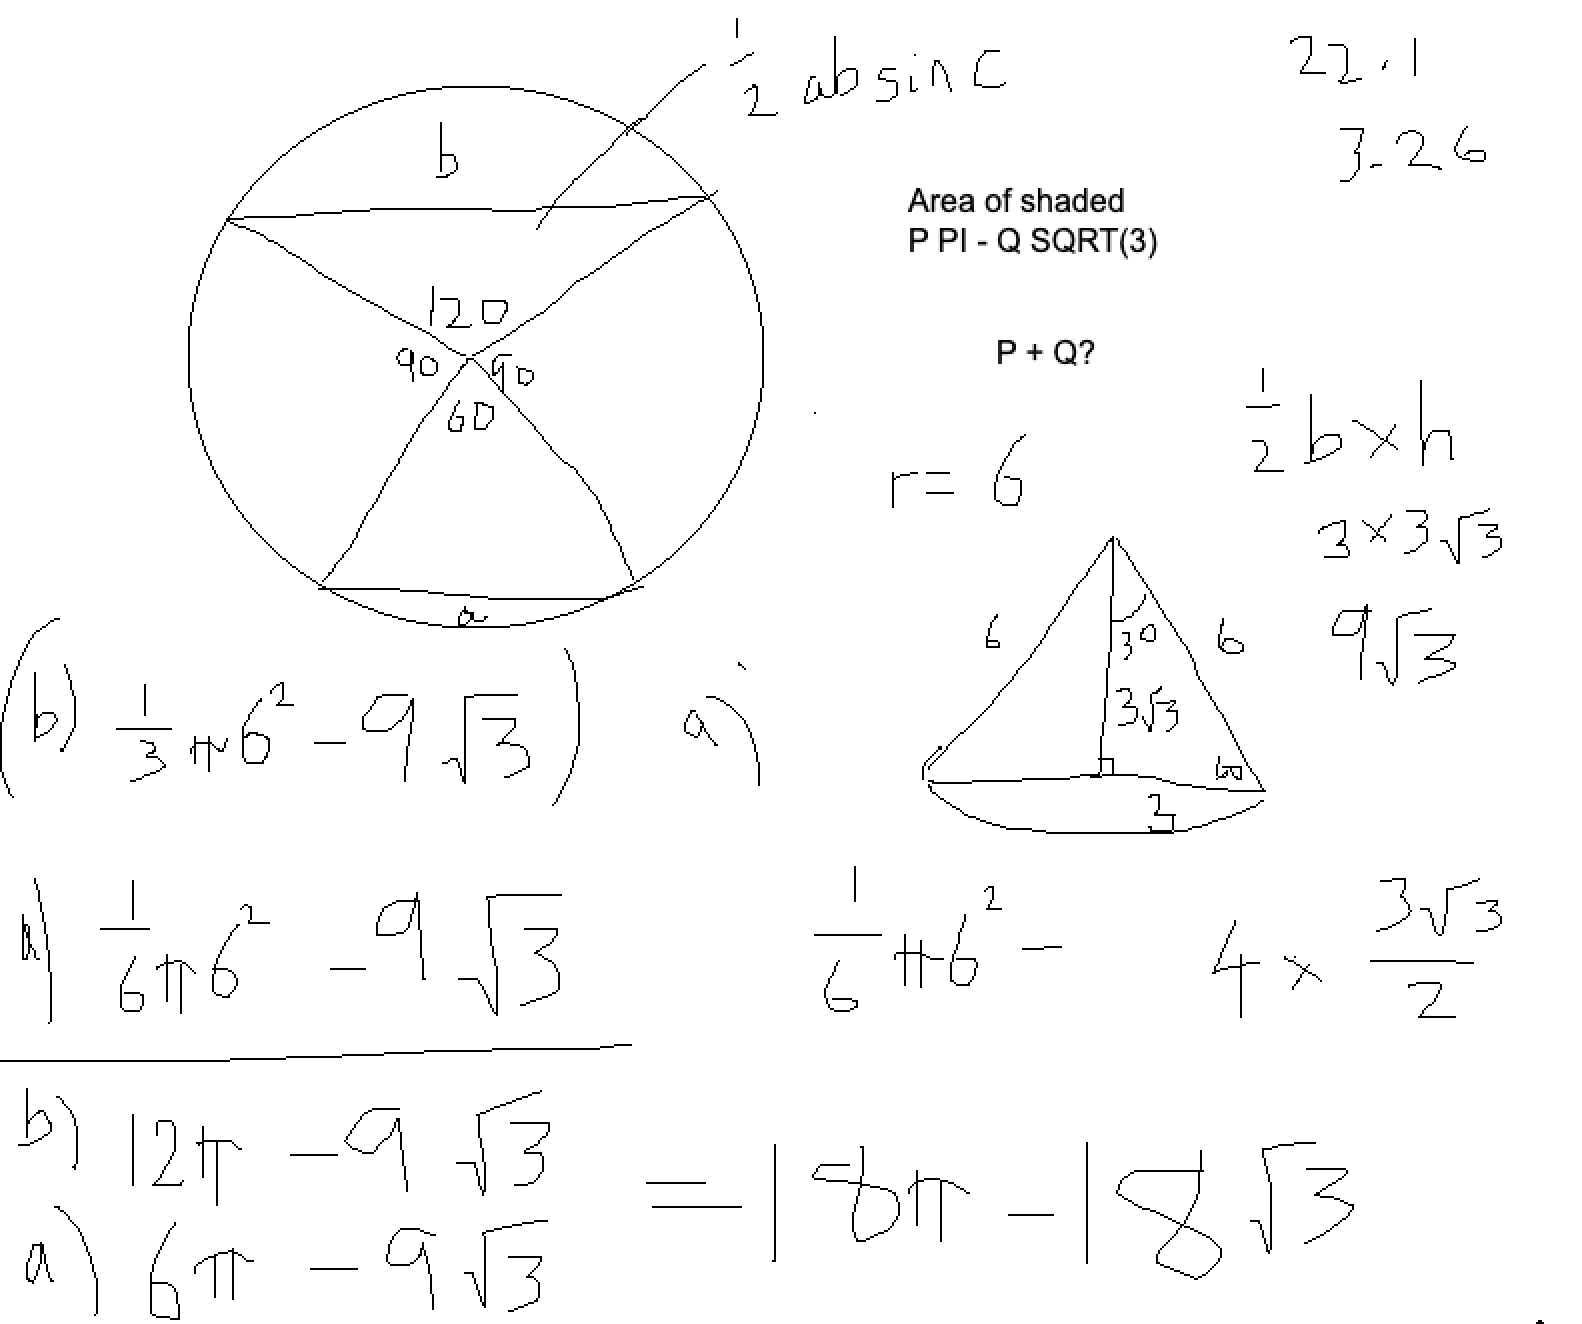 1/2 ab sin C
22.1
3.26
b
Area of shaded
P PI - Q SQRT(3)
120
90 90
60
P + Q?
r = 6
1/2 b × h
3 × 3√3
9√3
a
6 30 6
3√3
3
(b) 1/3 π 6² - 9√3)
a)
a) 1/6 π 6² - 9√3
1/6 π 6² -
4 × 3√3/2
b) 12π - 9√3
a) 6π - 9√3
= 18π - 18√3